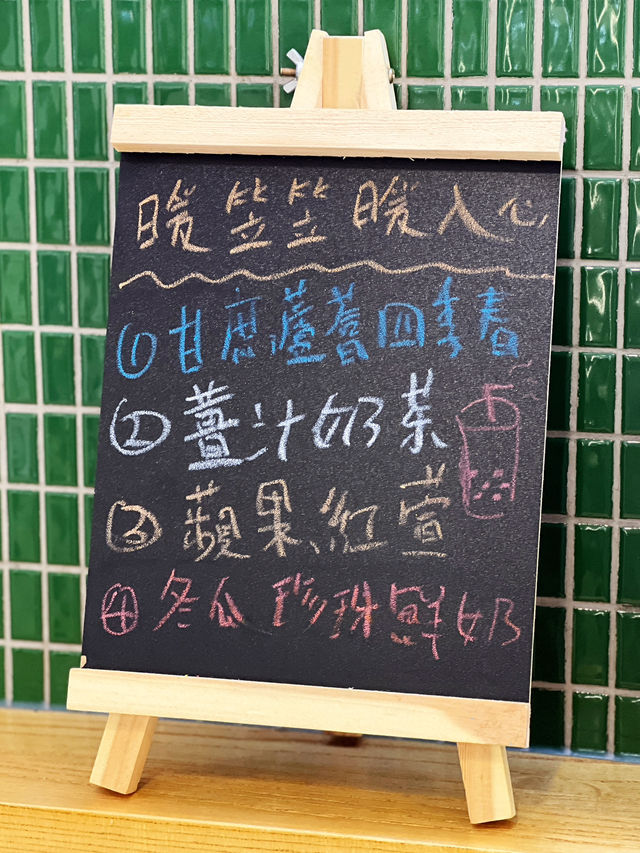 暖笠笠暖入心
①甘蔗蘆薈四季春
②薑汁奶茶
③蘋果紅萱
④冬瓜珍珠鮮奶